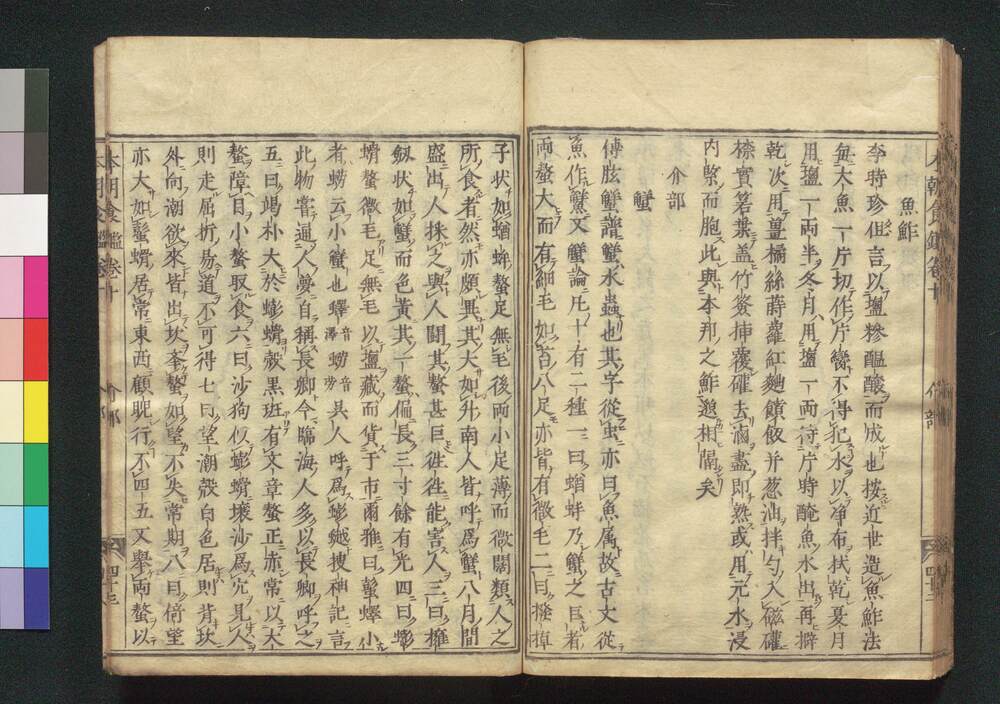 魚鮓
李時珍但言以鹽糝醞釀而成也按近世造魚鮓法
每大魚一斤切作片臠不得犯水以淨布拭乾夏月
用鹽一兩半冬月用鹽一兩待片時醃魚水出再擗
乾次用薑橘絲蒔蘿紅麴饙飯并葱油拌匀入磁罐
捺實箬葉盖竹簽挿覆罐去滷盡即熟或用元水浸
内緊而胞此與本邦之鮓邈相隔矣
介部
蟹
傅肱蟹譜蟹水蟲也其字從虫亦曰魚属故古文從
魚作䲒文蟹論凡十有二種一曰蝤蛑乃蟹之巨者
両螯大而有細毛如苔八足亦皆有微毛二曰撥棹
子状如蝤蛑螯足無毛後両小足薄而微闊類人之
所食者然亦頗異其大如升南人皆呼爲蟹八月間
盛出人採之與人鬬其螯甚巨往往能害人三曰擁
劔状如蟹而色黄其一螯偏長三寸餘有光四曰蟛
蜞螯微毛足無毛以鹽藏而貨于市爾雅曰蟚蠌小
者蟧云小蟹也蠌音澤蟧音勞呉人呼爲蟛蜞捜神記言
此物甞通人夢自稱長卿今臨海人多以長卿呼之
五曰竭朴大於蟛蜞殻黒班有文章螯正赤常以大
螯障目小螯取食六曰沙狗似蟛蜞壌沙爲穴見人
則走屈折易道不可得七曰望潮殻白色居則背坎
外向潮欲來皆出坎奉螯如望不失常期八曰倚望
亦大如蟚蜞居常東西顧睨行不四五又舉両螯以
本朝食鑑卷十
介部
四十三